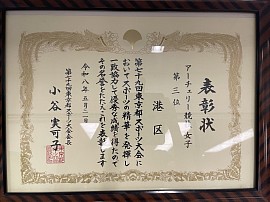 表彰状
アーチェリー競技 女子
第三位
港区
第七十九回東京都スポーツ大会に
おいてスポーツの精華を発揮し
一致協力して優秀な成績を得たので
その名誉をたたえこれを表彰します
令和八年五月二日
第七十九回東京都スポーツ大会会長
小谷実可子